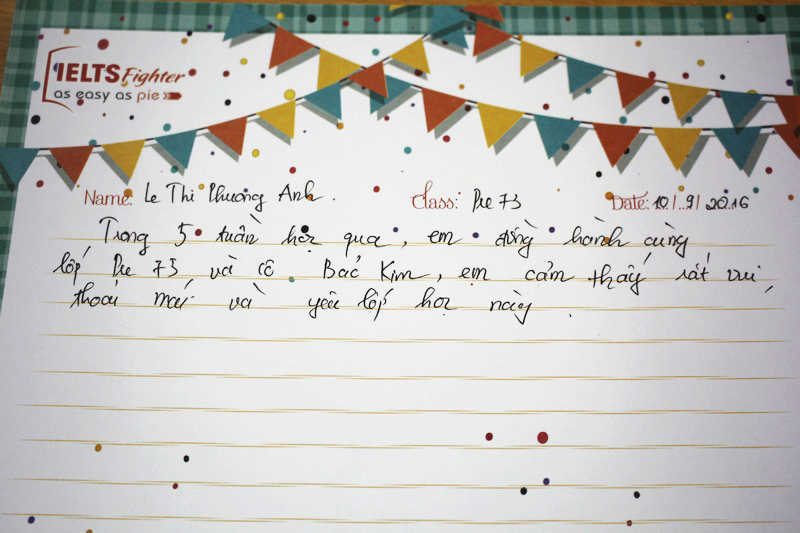 IELTS Fighter
as easy as pie
Name: Le Thi Phương Anh. Class: Pre 73 Date: 10/9/2016
Trong 5 tuần học qua, em đồng hành cùng
lớp Pre 73 và cô Bạc Kim, em cảm thấy rất vui,
thoải mái và yêu lớp học này.